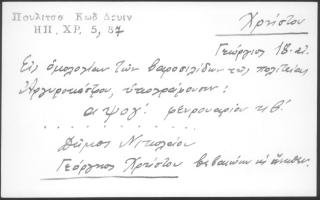 Πουλιτσα Κωδ Δευιν
ΗΠ. ΧΡ. 5, 87
Χρήστου
Γεώργιος 18. αἰ.
Εἰς ὁμολογίαν τῶν βαροσιλίδων τῆς πολιτείας
Ἀργυροκάστρου, ὑπογράφουσιν:
αψογ! φευρουαρίου κθ!
. . . . . . . . . .
Δῆμος Νικολάου
Γεώργηος Χρήστου βεβαιώνω